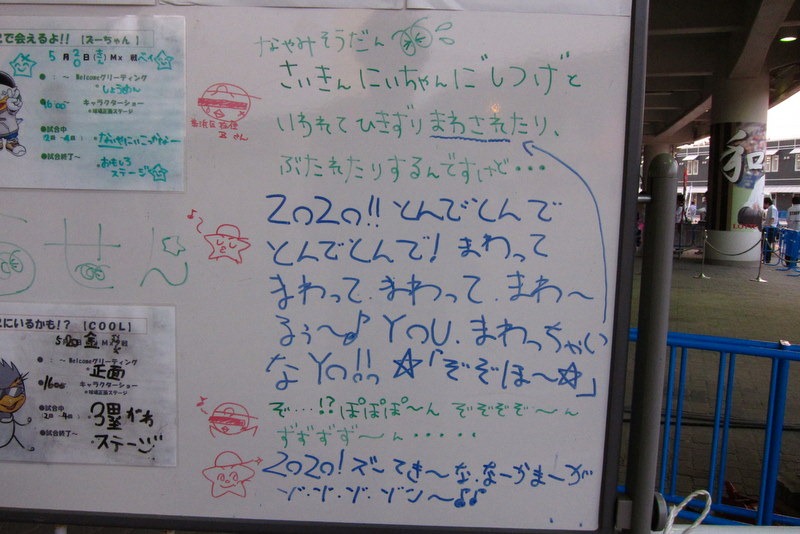 で会えるよ!! 【ズーちゃん】
5月20日(金) Mx 戦
● : ～ Welcomeグリーティング
しょうめん
●16:00～ キャラクターショー
*球場正面ステージ
●試合中
2回~4回 : ないやにいこかなー
●試合終了～ おもしろ
ステージ
にいるかも!? 【COOL】
5月20日金 M
● : ～ Welcomeグリーティング
正面
●16:00 キャラクターショー
*球場正面ステージ
●試合中
2回~4回 : 3塁がわ
●試合終了～ ステージ
なやみそうだん
さいきんにいちゃんに"しつけ"と
いわれてひきずりまわされたり、
ぶたれたりするんですけど・・・
2020!! とんでとんで
とんでとんで! まわって
まわって、まわって、まわ～
るぅ～♪ YOU、まわっちゃい
なYO!! ☆「ぞぞほ～☆」
ぞ…!? ぽぽぽ～ん ぞぞぞぞ～ん
ずずずず～ん・・・・・
2020! ズーてき～な、なーかまーが
ゾ・ゾ・ゾ・ゾン～♪♪
和